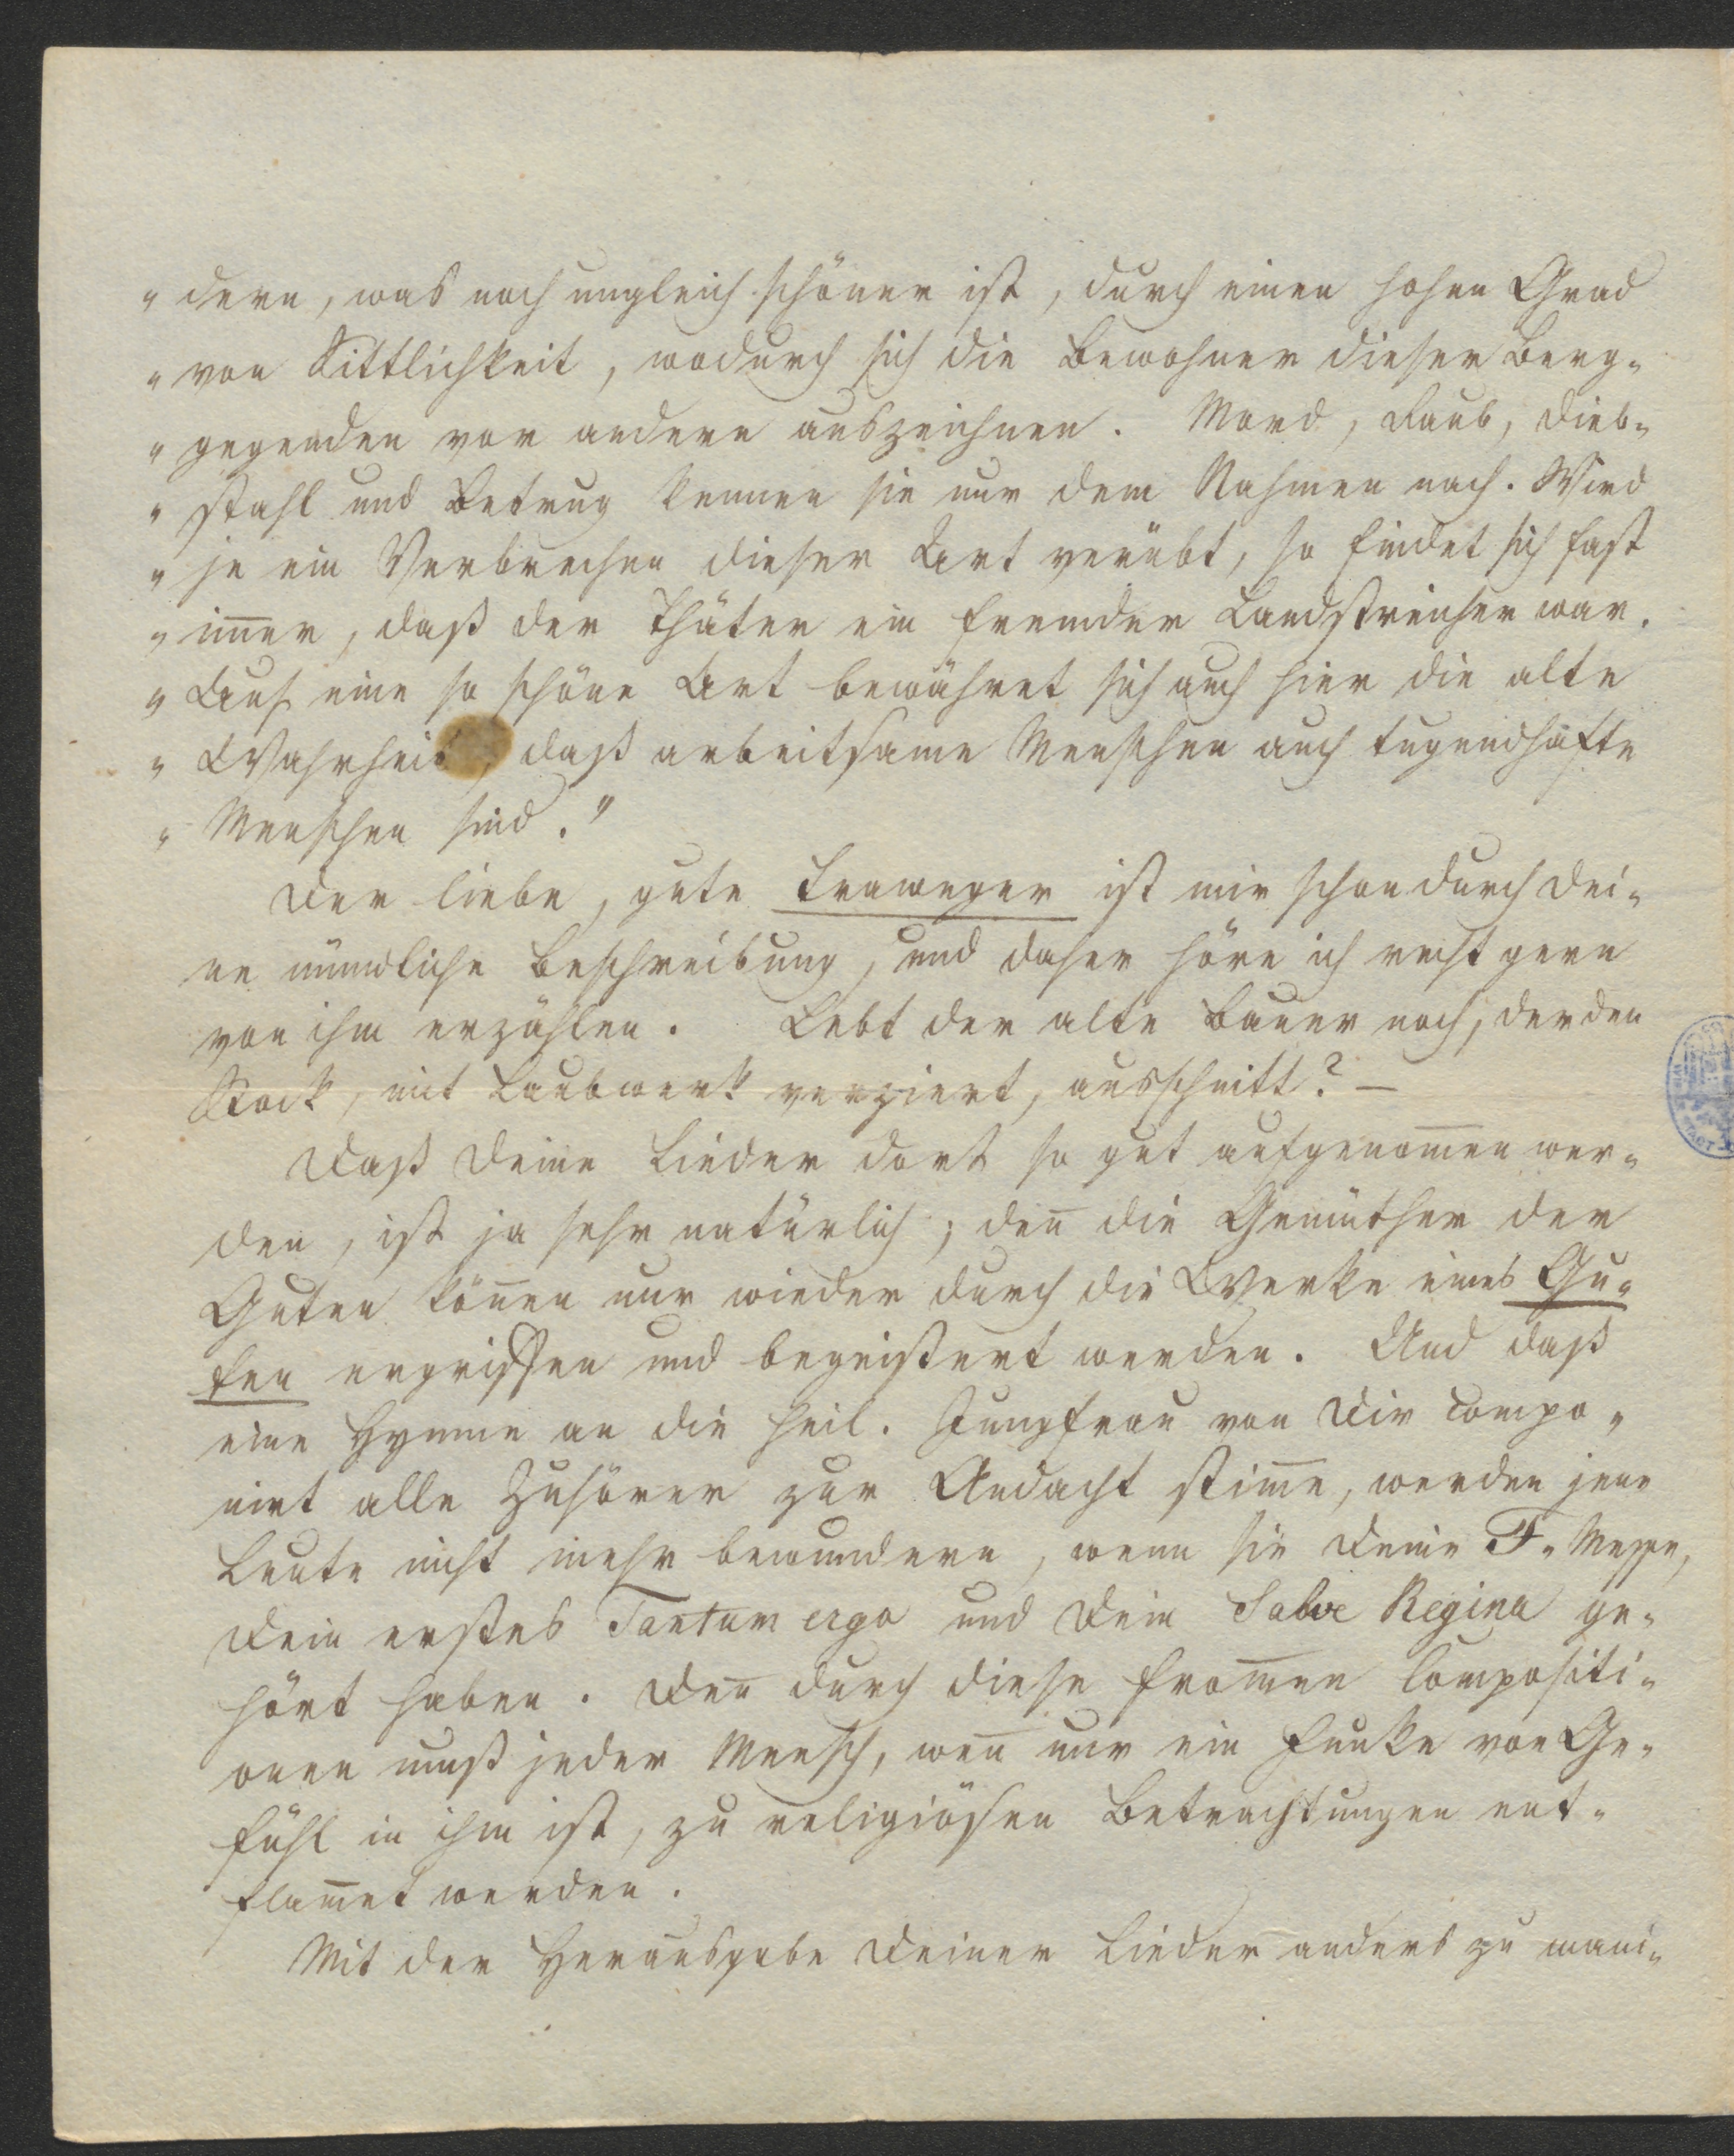 „ dern, was noch ungleich schöner ist, durch einen hohen Grad
„ von Sittlichkeit, wodurch sich die Bewohner dieser Berg„
„ gegenden vor andern auszeichnen. Mord, Raub, Dieb„
„ stahl und Betrug kennen sie nur dem Nahmen nach. Wird
„ je ein Verbrechen dieser Art verübt, so findet sich fast
„ im̅er, daß der Thäter ein fremder Landstreicher war.
„ Auf eine so schöne Art bewähret sich auch hier die alte
„ Wahrheit, daß arbeitsame Menschen auch tugendhafte
„ Menschen sind."
Der liebe, gute Traweger ist mir schon durch Dei„
ne mündliche Beschreibung, und daher höre ich recht gern
von ihm erzählen. Lebt der alte Bauer noch, der den
Stock, mit Laubwerk verziert, ausschnitt? —
Daß Deine Lieder dort so gut aufgenom̅en wer„
den, ist ja sehr natürlich; den̅ die Gemüther der
Guten kön̅en nur wieder durch die Werke eines Gu„
ten ergriffen und begeistert werden. Und daß
eine Hymne an die heil. Jungfrau von Dir compo„
nirt alle Zuhörer zur Andacht stim̅e, werden jene
Leute nicht mehr bewundern, wenn sie Deine F„ Messe,
Dein erstes Tantum ergo und Dein Salve Regina ge„
hört haben. Den̅ durch diese from̅en Compositi„
onen muß jeder Mensch, wen̅ nur ein Funke von Ge„
fühl in ihm ist, zu religiösen Betrachtungen ent„
flam̅et werden.
Mit der Herausgabe Deiner Lieder anders zu mani„